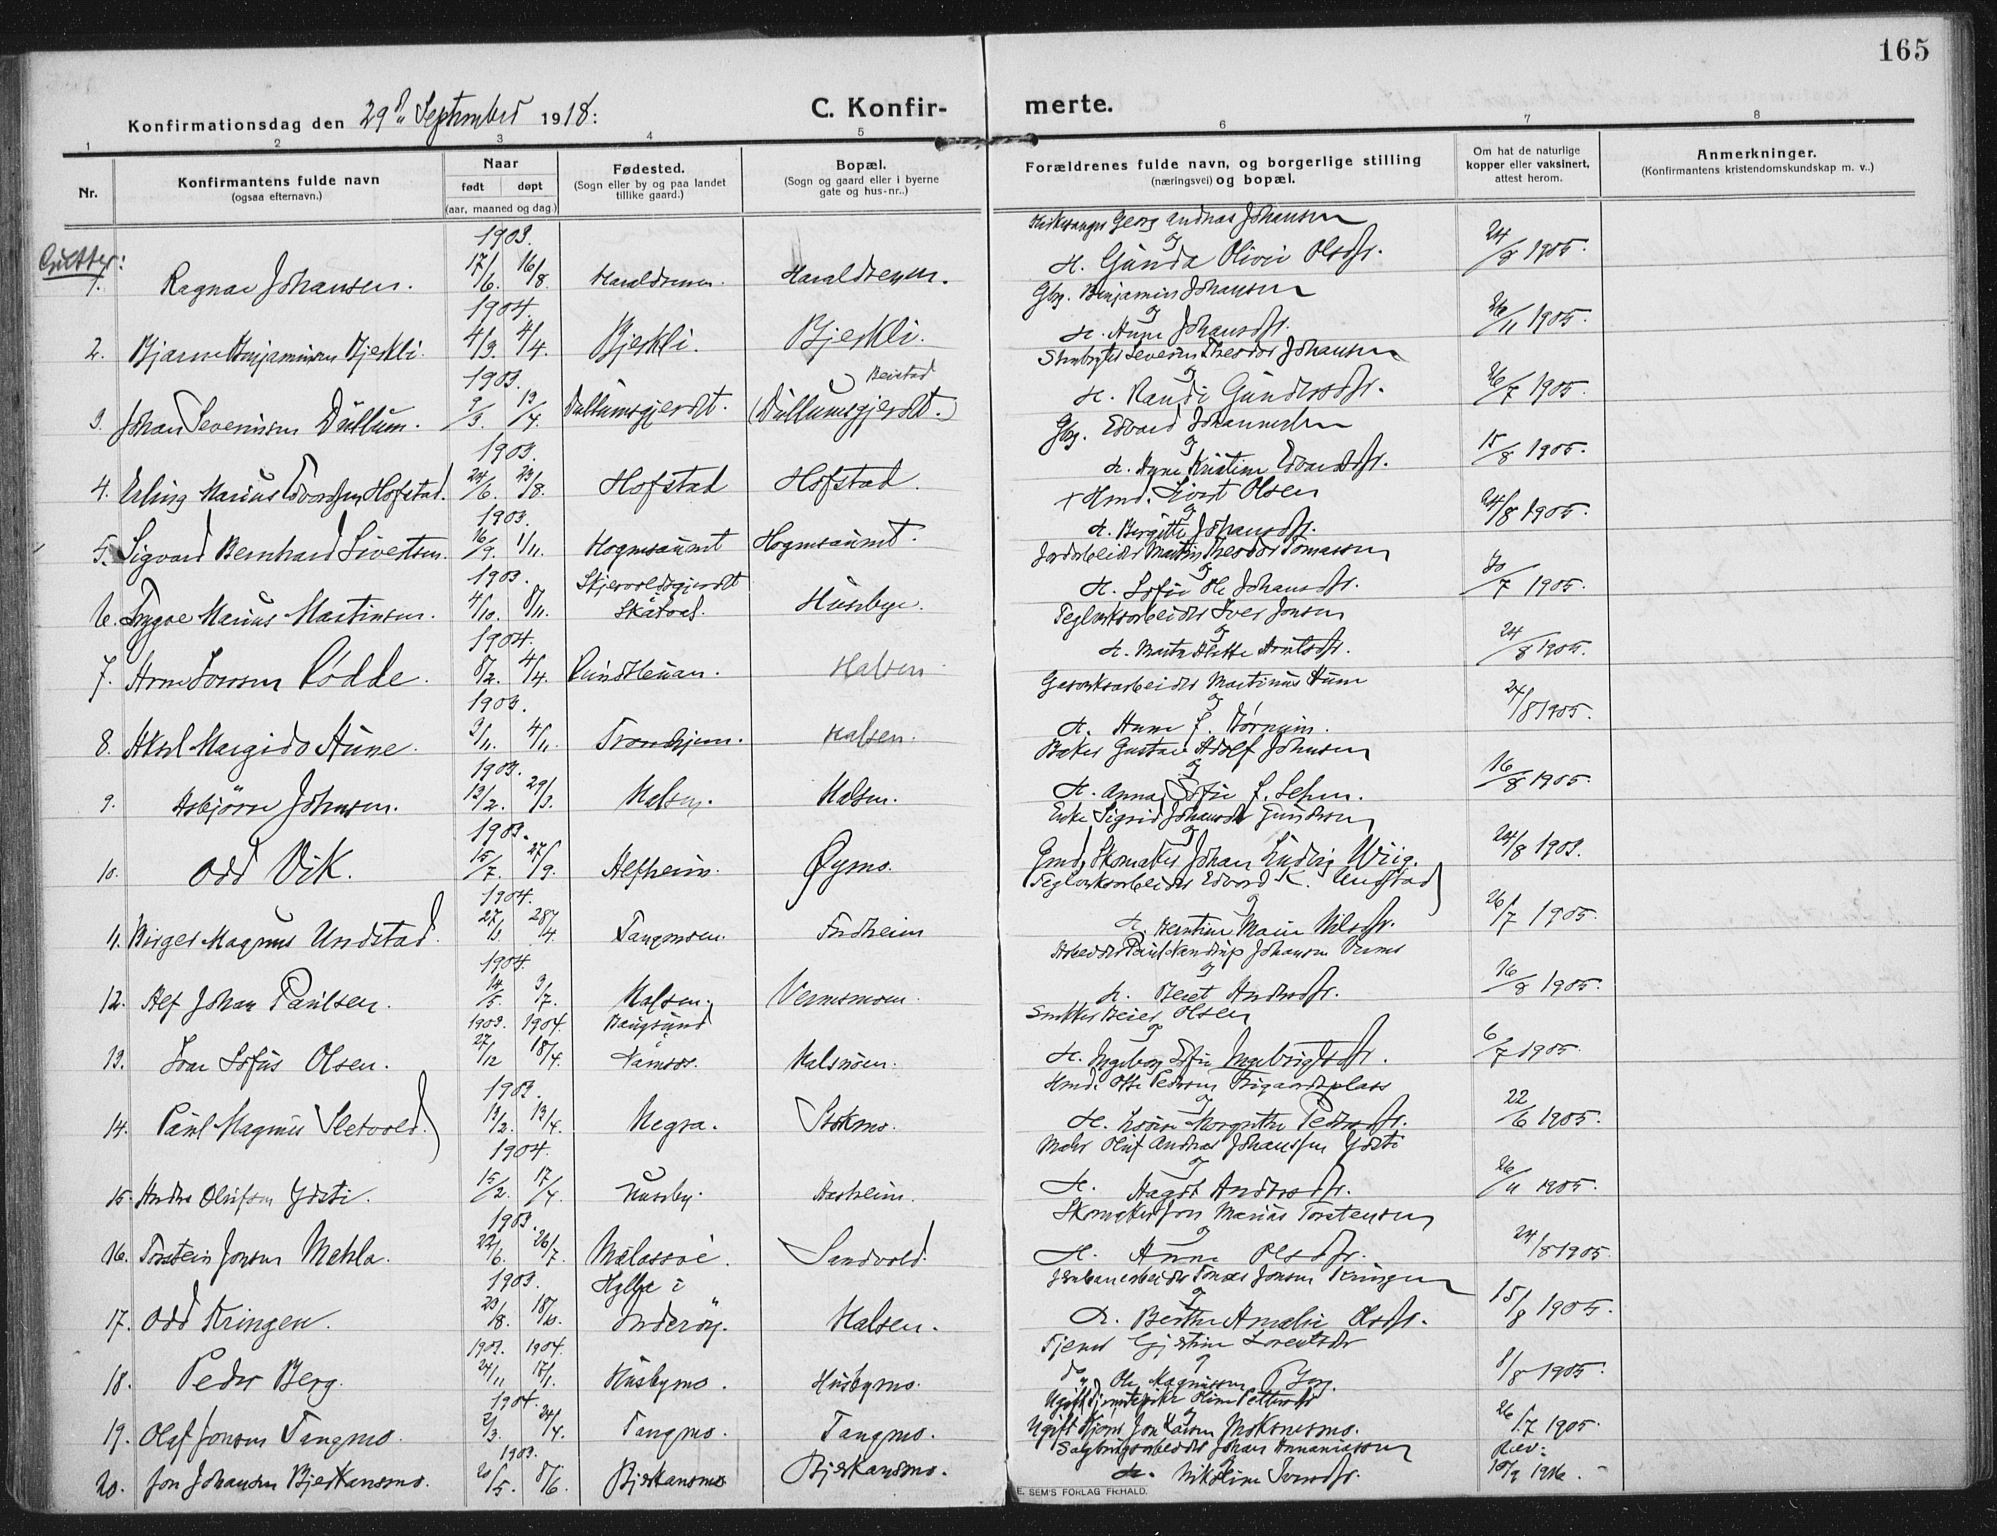 165
Konfirmationsdag den 29de September 1918:
C. Konfir- merte.
1 2 3 4 5 6 7 8
Nr.
Konfirmantens fulde navn
(ogsaa efternavn.)
Naar
født døpt
(aar, maaned og dag.)
Fødested.
(Sogn eller by og paa landet
tillike gaard.)
Bopæl.
(Sogn og gaard eller i byerne
gate og hus-nr..)
Forældrenes fulde navn, og borgerlige stilling
(næringsvei) og bopæl.
Om hat de naturlige
kopper eller vaksinert,
attest herom.
Anmerkninger.
(Konfirmantens kristendomskundskap m. v..)
Gutter:
1. Ragnar Johansen. 1903. 17/6. 16/8. Haraldreina. Haraldreina. Georg Andreas Johansen
og
H. Gunda Olivie Olsdtr. 24/8 1905.
2. Bjarne Benjaminsen Bjerkli. 1904. 4/3. 4/4. Bjerkli. Bjerkli. Gbr. Benjamin Johansen
og
H. Anne Johansdtr. 26/11 1905.
3. Johan Severinsen Dullum. 1903. 9/3. 13/4. Dullumsgjerdt. Beistad (Dullumsgjerdt.) Severin Theodor Johansen
og
H. Randi Gundersdtr. 26/7 1905.
4. Erling Marius Edvardsen Hofstad. 1903. 24/6. 23/8. Hofstad Hofstad. Gbr. Edvard Johannesen
og
H. Anne Kristine Edvardsdtr. 15/8 1905.
5. Sigvard Bernhard Sivertsen. 1903. 16/9. 1/11. Hognesaunet Hognesaunet. + Hmd. Sivert Olsen
og
H. Bergitte Johansdtr. 24/8 1905.
6. Trygve Marius Martinsen. 1903. 4/10. 8/11. Skjervoldsgjerdet Skatval. Husbye. Jordarbeider Martin Theodor Tomassen
og
H. Sofie Ole Johansdtr. 30/7 1905.
7. Arne Iversen Rødde. 1904. 8/2. 4/4. Halsen Teglverksarbeider Iver Jonsen
og
H. Marta Mette Arntsdtr. 24/8 1905.
8. Aksel Margido Aune. 1903. 3/11. 4/11. Trondhjem. Halsen. Gasverksarbeider Martinus Aune
og
H. Anne f. Størseim. 24/8 1905.
9. Asbjørn Johnsen. 1903. 13/2. 29/3. Halsen. Halsen. Baker Gustav Adolf Johnsen
og
H. Anna Sofie f. 16/8 1905.
10. Odd Vik. 1903. 15/7. 27/9. Alfheim. Øymo. Enke Sigrid Johansdtr Gundersen
og
Gmd. Skomaker Johan Ludvig Wiig. 24/8 1903.
11. Birger Magnus Undstad. 1904. 27/3. 28/4. Tangmoen. Fredheim Teglverksarbeider Edvard K. Undstad
og
H. Berntine Marie Nilsdtr. 26/7 1905.
12. Alf Johan Paulsen. 1904. 14/5. 3/7. Halsen. Vermsmoen. Arbeider Paul Johansen
og
H. Beret Andersdtr. 16/8 1905.
13. Ivar Sofus Olsen. 1903. 1904. 27/12 18/4. Bangsund Namsos. Halsmoen. Beier Olsen
og
H. Ingeborg Sofie Ingebrigtsdtr. 6/7 1905.
14. Paul Magnus Sletvold. 1903. 13/2. 13/4. Hegra. Stokmo. Hmd. Otte Pedersen
og
H. Louise Margrethe Pedersdtr. 22/6 1905.
15. Andre Olufsen Ydsti. 1904. 15/2. 17/4. Husby. Aasheim. Maler Oluf Andreas Johanssen Ydsti
og
H. Magdt Andersdtr. 26/11 1905.
16. Torstein Jonsen Mæhla. 1903. 22/6. 26/7. Sandvold. Skomaker Jon Marius Torstensen
og
H. Anne Olsdtr. 24/8 1905.
17. Odd Kringen. 1903. 23/8. 18/10. Hylla i Inderøy. Halsen. Jernbanearbeider Jonsen Kringen
og
H. Berthe Amalie Olsdtr. 15/8 1905.
18. Peder Berg. 1903. 1904. 24/11 17/1. Husbymo. Husbymo. Gjertine Lorentsdtr
og
Ole Magnussen Berg. 8/8 1905.
19. Olaf Jonsen Tangmo. 1904. 2/3. 24/4. Tangmo. Tangmo. Ugift tjenestepike Oline Pettersdtr
og
Ugift Jon Larsen Moksnesmo. 26/7 1905.
20. Jon Johansen Bjerkansmo. 1903. 20/5. 8/6. Bjerkansmo Bjerkansmo. Sagbrugsarbeider Johan Annaniassen
og
H. Nikoline Iversdtr. Rev. 10/9 1916.
E. SEM'S FORLAG FR.HALD.